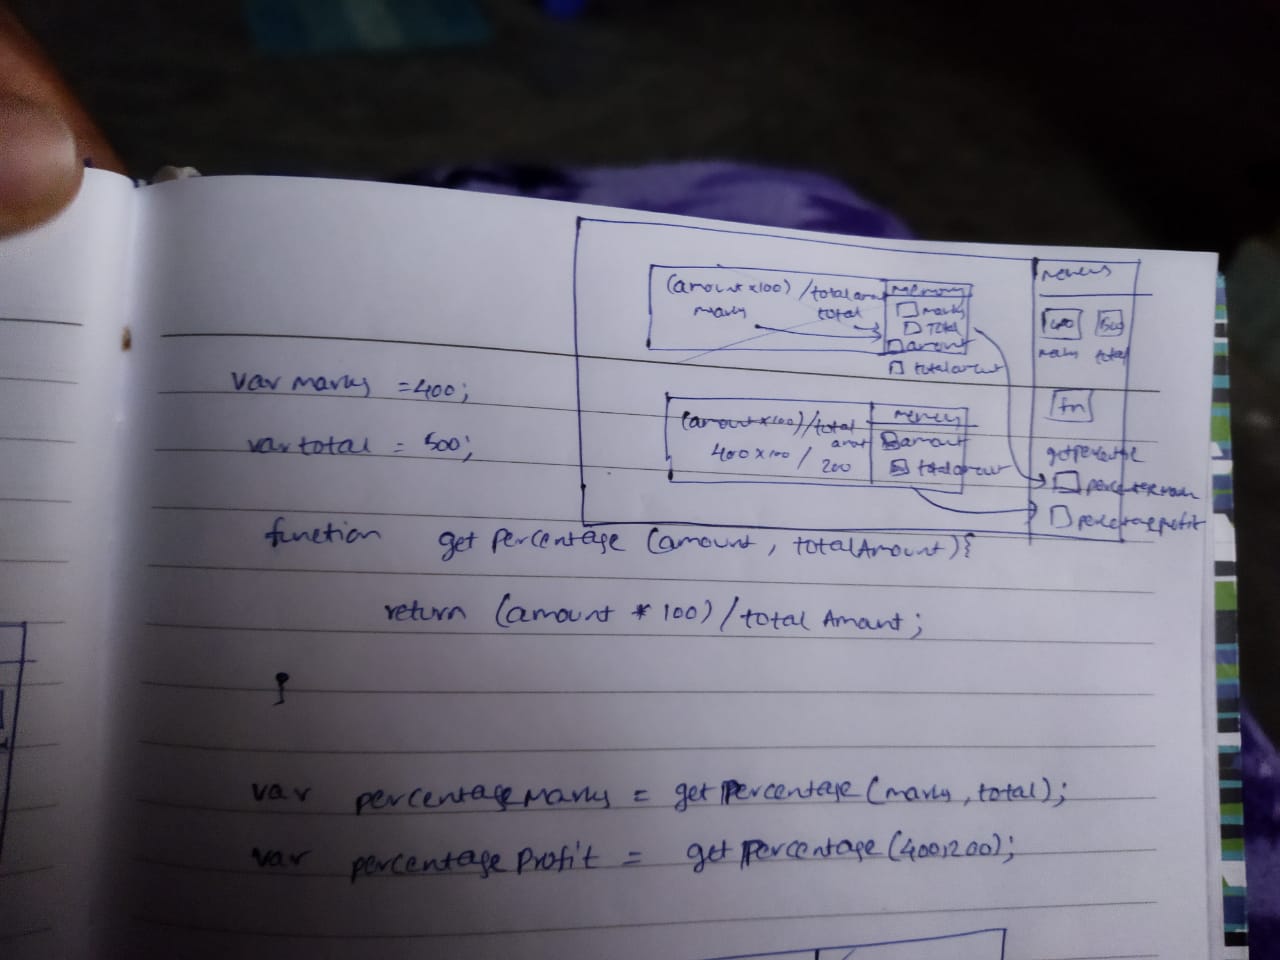 (amount x100) /total amt
marks total
memory
marks
Total
amount
totalamount
(amount x100)/total
amount
400 x 100 / 200
memory
amount
totalamount
memory
400 500
marks total
fn
getpercentage
percentagemarks
percentageprofit
var marks = 400;
var total = 500;
function get Percentage (amount, totalAmount){
return (amount * 100) / total Amount;
}
var percentageMarks = get Percentage (marks, total);
var percentage Profit = get Percentage (400,200);